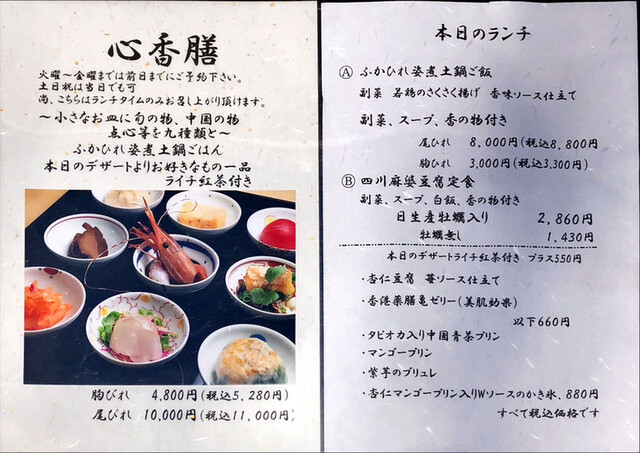 心香膳
火曜～金曜までは前日までにご予約下さい。
土日祝は当日でも可
尚、こちらはランチタイムのみお召し上がり頂けます。
～小さなお皿に旬の物、中国の物
点心等を九種類と～
ふかひれ姿煮土鍋ごはん
本日のデザートよりお好きなもの一品
ライチ紅茶付き
胸びれ 4,800円(税込5,280円)
尾びれ 10,000円(税込11,000円)
本日のランチ
Ⓐ ふかひれ姿煮土鍋ご飯
副菜 若鶏のさくさく揚げ 香味ソース仕立て
副菜、スープ、香の物付き
尾びれ 8,000円(税込8,800円
胸びれ 3,000円(税込3,300円)
Ⓑ 四川麻婆豆腐定食
副菜、スープ、白飯、香の物付き
日生産牡蠣入り 2,860円
牡蠣無し 1,430円
本日のデザートライチ紅茶付き プラス550円
・杏仁豆腐 苺ソース仕立て
・香港薬膳亀ゼリー(美肌効果)
以下660円
・タピオカ入り中国青茶プリン
・マンゴープリン
・紫芋のブリュレ
・杏仁マンゴープリン入りWソースのかき氷、880円
すべて税込価格です